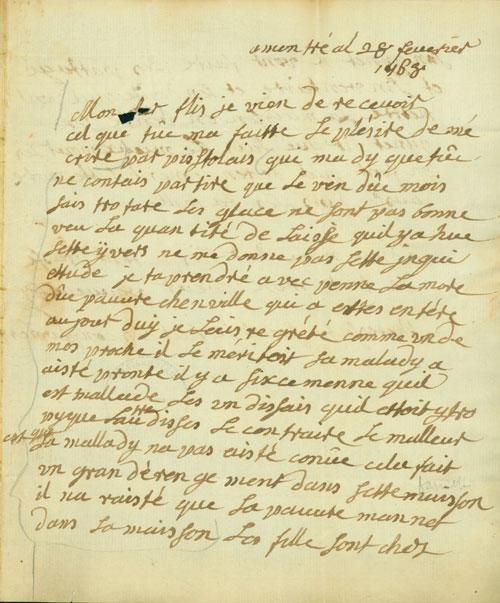 a montréal 28 feuerier
1768
Mon cher flis je vien de receuoir
cel que tûe ma faitte le plésire de mé
crire par pistolais que ma dy que tûe
ne contais partire que le ven dûe mois
sais tro tare les glace ne sont pas bonne
veu la quantité de laisse quil y a hue
sette yvers ne me donne pas sette inqui
etude je ta prendré avec penne la more
dûe pauure chenville qui a ettes entére
aujour duy je lais regrété comme un de
mes proche il le méritoit sa malady a
aisté pronte il y a six cemenne quil
est mallade les un dissais quil ettoit ytro
pyque lautre disses le contraire le malleur
est que sa mallady na pas aisté conûe cela fait
un gran dérengement dans sette maisson
il na raisté que la pauure mannet
dans la maisson les fille sont chez